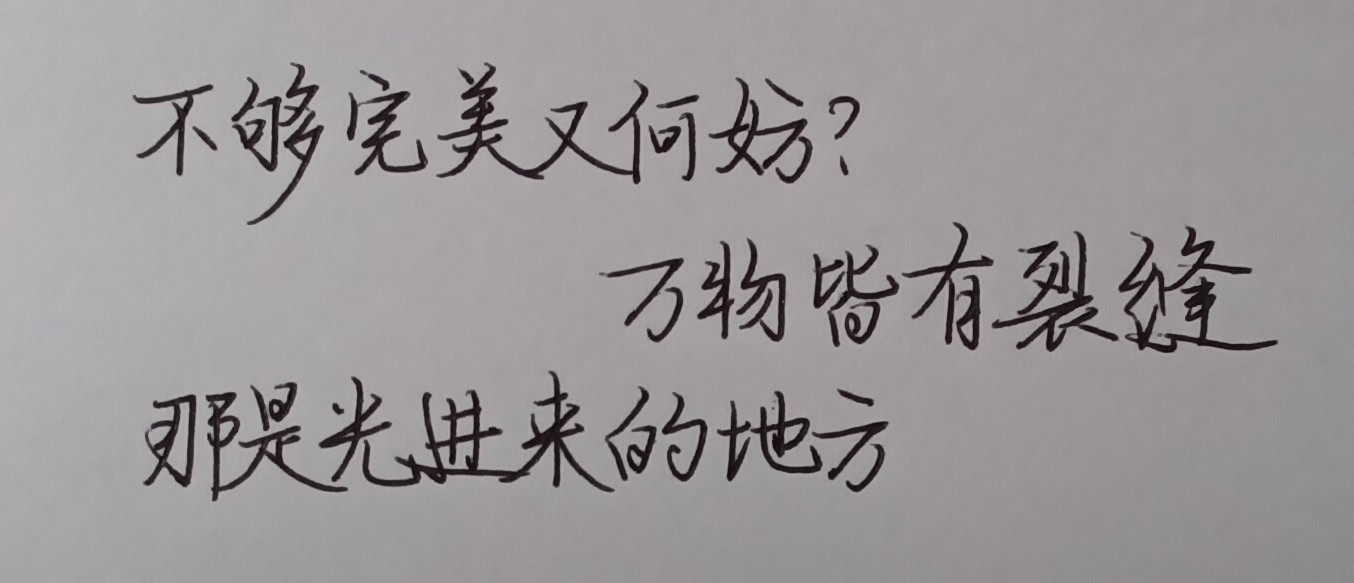 不够完美又何妨？
万物皆有裂缝
那是光进来的地方